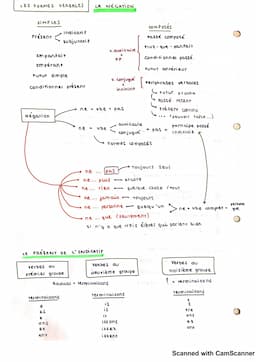 LES FORMES VERBALES
LA NÉGATION
SIMPLES
COMPOSÉS
Présent
indicatif
subjonctif
imparfait
impératif
futur simple
conditionnel présent
v.auxiliaire
+
PP
passé composé
plus-que-parfait
conditionnel passé
futur antérieur
v.conjugué
+
infinitif
périphrases verbales
futur proche
passé récent
présent continu
Négation
ne + vbe + pas
ne + vbe
auxiliaire
conjugué
+ pas +
participe passé
infinitif
formes composés
ne ... pas
toujours seul
ne ... plus
encore
ne ... rien
quelque chose / tout
ne ... jamais
toujours
ne ... personne
quelqu'un
ne ... que (seulement)
LE PRÉSENT DE L'INDICATIF
Verbes du
premier groupe
Verbes du
deuxième groupe
Verbes du
troisième groupe
Radical + terminaisons
terminaisons
terminaisons
terminaisons
e
es
e
ons
ez
ent
is
is
it
issons
issez
issent
s
s
ons
ez
ent
Scanned with CamScanner